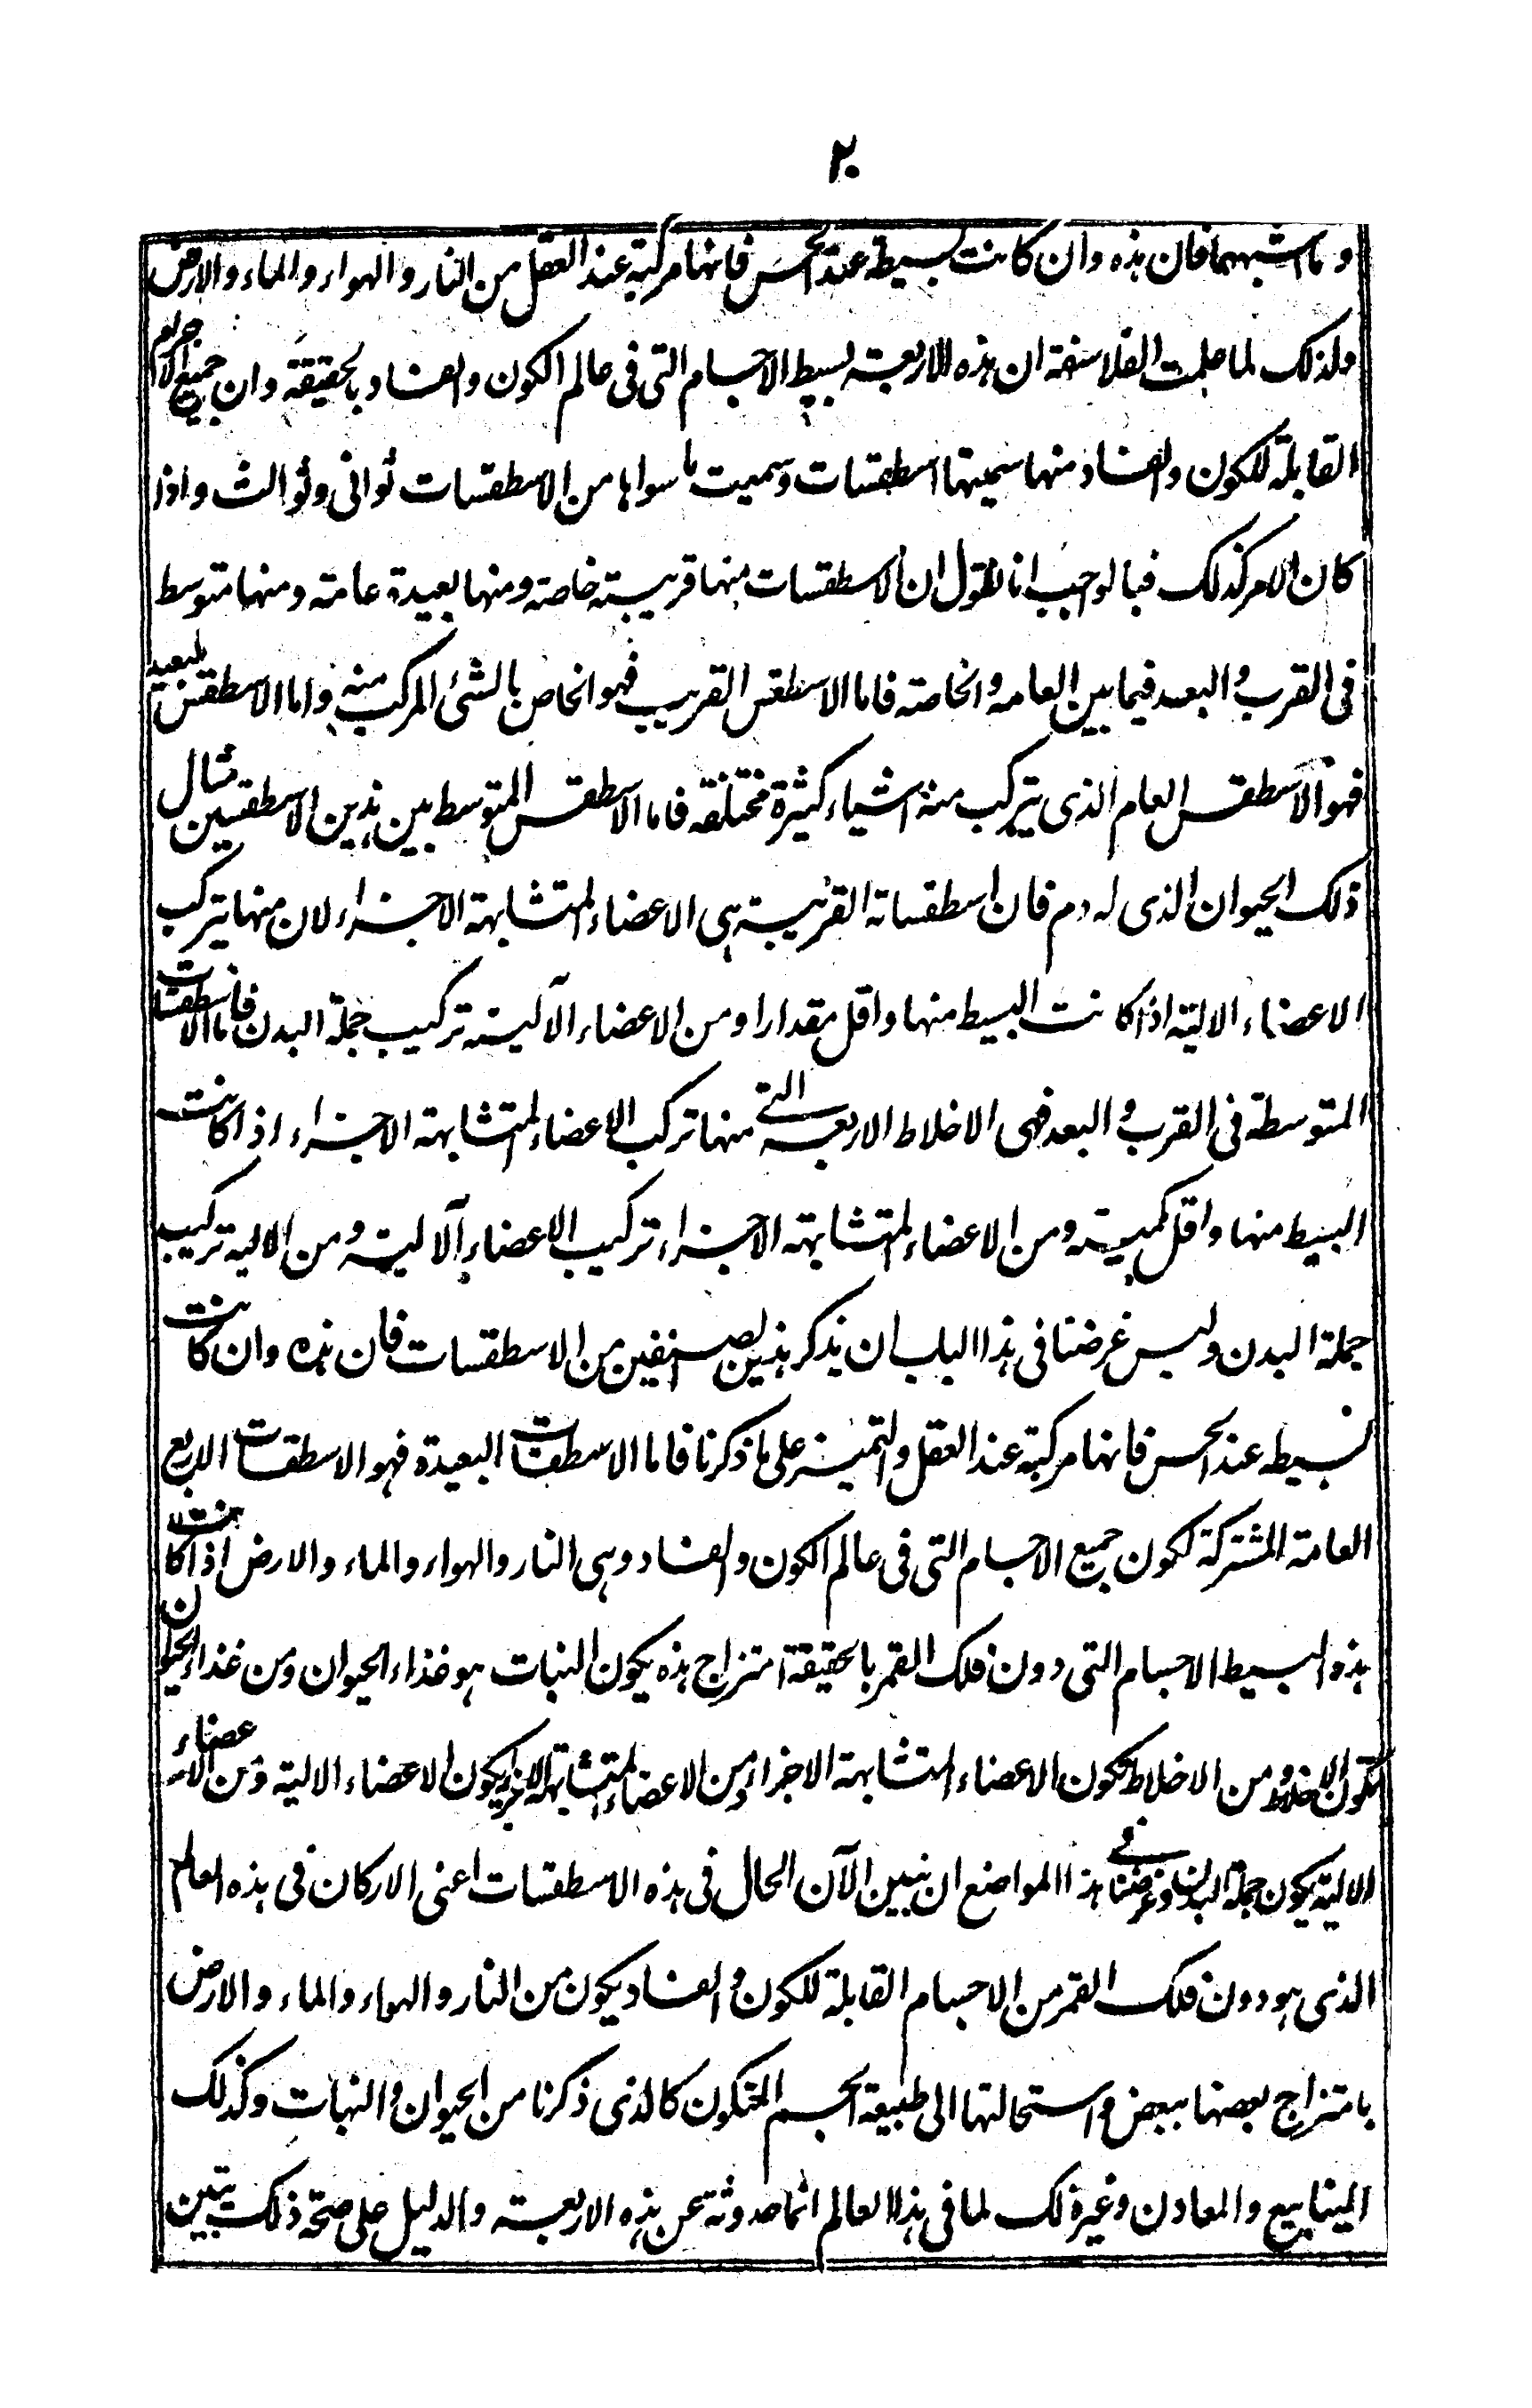 ٢٠
وما اشبههما فان هذه وان كانت بسيطة عند الحس فانها مركبة عند العقل من النار والهواء والماء والارض
ولذلك لما علمت الفلاسفة ان هذه الاربعة بسيط الاجسام التى فى عالم الكون والفساد بالحقيقة وان جميع الاجرام
القابلة للكون والفساد منها سميتها اسطقسات وسميت ما سواها من الاسطقسات ثوانى وثوالث واذا
كان الامر كذلك فبالواجب انا نقول ان الاسطقسات منها قريبة خاصة ومنها بعيدة عامة ومنها متوسط
فى القرب والبعد فيما بين العامه والخاصة فاما الاسطقس القريب فهو الخاص بالشئ المركب منه واما الاسطقس البعيد
فهو الاسطقس العام الذى يتركب منه اشياء كثيرة مختلفة فاما الاسطقس المتوسط بين هذين الاسطقسين مثال
ذلك الحيوان الذى له دم فان اسطقساته القريبة هى الاعضاء المتشابهة الاجزاء لان منها يتركب
الاعضاء الالية اذا كانت البسيط منها واقل مقدارا ومن الاعضاء الآلية تركيب جملة البدن فاما الاسطقسات
المتوسطة فى القرب والبعد فهى الاخلاط الاربعة التى منها تركب الاعضاء المتشابهة الاجزاء اذا كانت
البسيط منها واقل كمية ومن الاعضاء المتشابهة الاجزاء تركيب الاعضاء الآلية ومن الالية تركيب
جملة البدن وليس غرضنا فى هذا الباب ان يذكر هذين الصنفين من الاسطقسات فان هذه وان كانت
بسيطه عند الحس فانها مركبة عند العقل والتميز على ما ذكرنا فاما الاسطقسات البعيدة فهو الاسطقسات الاربع
العامة المشتركة لكون جميع الاجسام التى فى عالم الكون والفساد وهى النار والهواء والماء والارض اذ كانت
هذه البسيط الاجسام التى دون فلك القمر بالحقيقة امتزاج هذه يكون النبات هو غذاء الحيوان ومن غذاء الحيوان
تكون الاخلاط ومن الاخلاط تكون الاعضاء المتشابهة الاجزاء ومن الاعضاء المتشابهة الاجزاء يكون الاعضاء الالية ومن الاعضاء
الالية يكون جملة البدن وغرضنا فى هذا المواضع ان نبين الآن الحال فى هذه الاسطقسات اعنى الاركان فى هذه العالم
الذى هو دون فلك القمر من الاجسام القابلة للكون والفساد يكون من النار والهواء والماء والارض
بامتزاج بعضها ببعض واستحالتها الى طبيعة الجسم المتكون كالذى ذكرنا من الحيوان والنبات وكذلك
الينابيع والمعادن وغير ذلك لما فى هذا العالم انما حدوثه عن هذه الاربعة والدليل على صحة ذلك يتبين